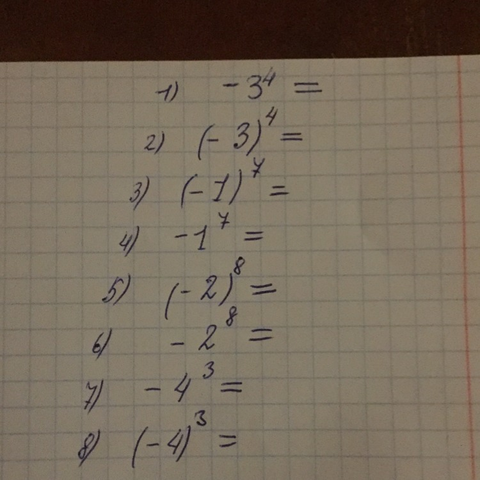 1) -3⁴ =
2) (-3)⁴ =
3) (-1)⁷ =
4) -1⁷ =
5) (-2)⁸ =
6) -2⁸ =
7) -4³ =
8) (-4)³ =